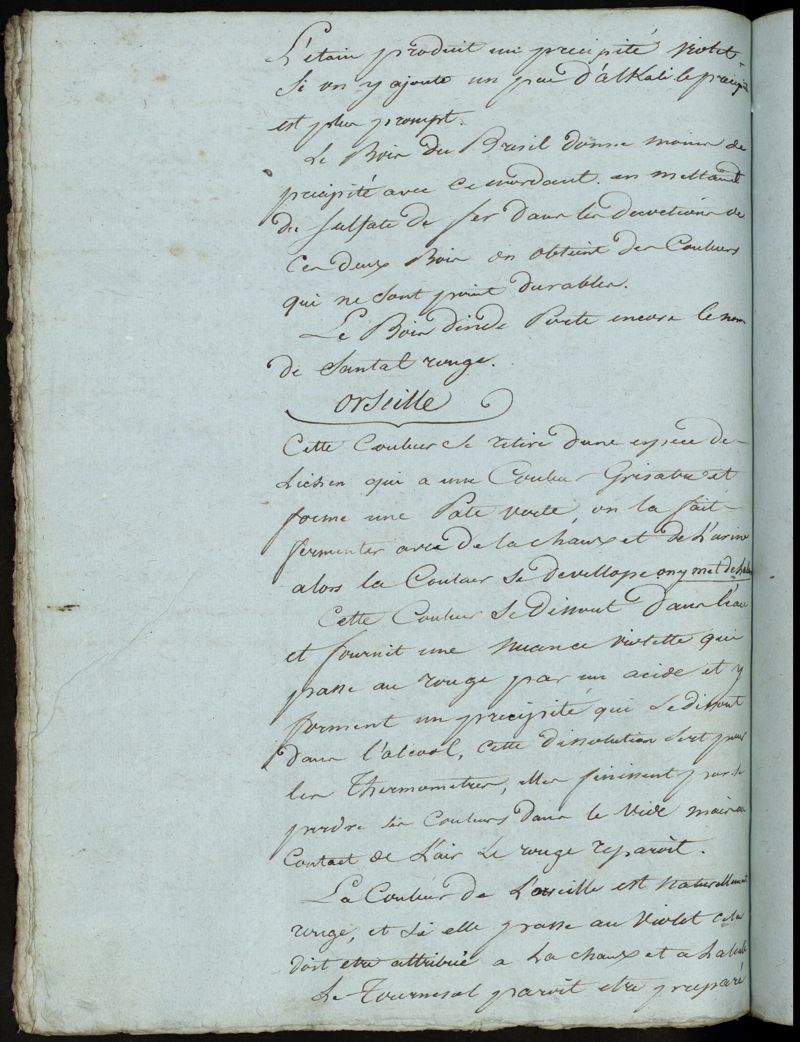 L'étain produit un précipité violet.
Si on y ajoute un peu d'alkali le précip
est plus prompt.
Le Bois du Bresil donne moins de
précipité avec ce mordant. en mettant
du sulfate de fer dans les decoctions de
Ces deux Bois on obtient des Couleurs
qui ne sont point durables.
Le Bois d'inde Porte encore le nom
de Santal rouge.
Orseille
Cette Couleur se retire d'une espece de
Lichen qui a une Couleur Grisatre et
forme une Pate verte, on la fait
fermenter avec de la chaux et de L'urine
alors la Couleur se devellope on y met de
Cette Couleur se dissout dans l'eau
et fournit une nuance violette qui
passe au rouge par un acide et y
forment un précipité qui se dissout
dans l'alcool, cette dissolution sert pour
les Thermometres, elles finissent par se
perdre ses Couleurs dans le vide mais au
Contact de L'air Le rouge reparoit.
La Couleur de L'orseille est naturellement
rouge, et si elle passe au violet cela
doit etre attribué a La chaux et a
Le Tournesol paroit etre preparé